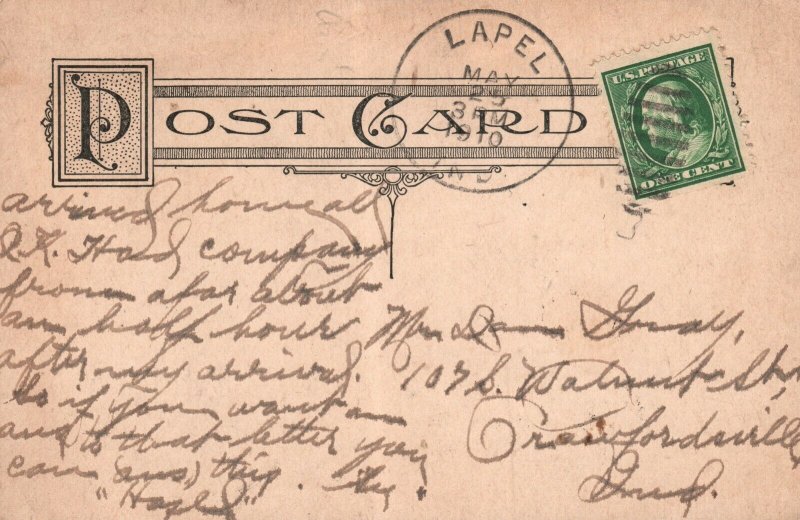 POST CARD
LAPEL
MAY
25
3 PM
1910
IND.
U.S. POSTAGE
ONE CENT
arrived home all
O.K. Had company
from afar about
an half hour
after my arrival.
So if you want an
ans to that letter you
can (ans) this.
"Hazel"
Mr. Dan
107 S. Walnut St,
Crawfordsville
Ind.